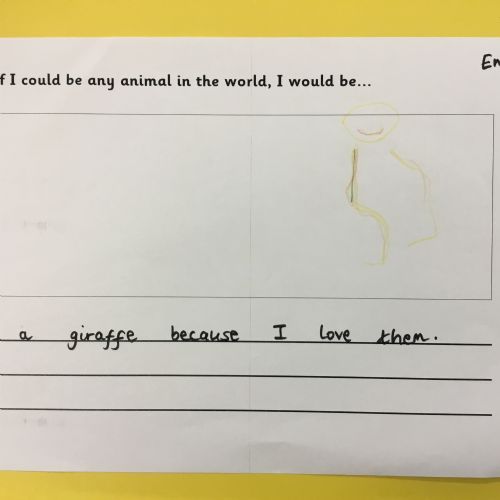 Em
f I could be any animal in the world, I would be...
a giraffe because I love them.